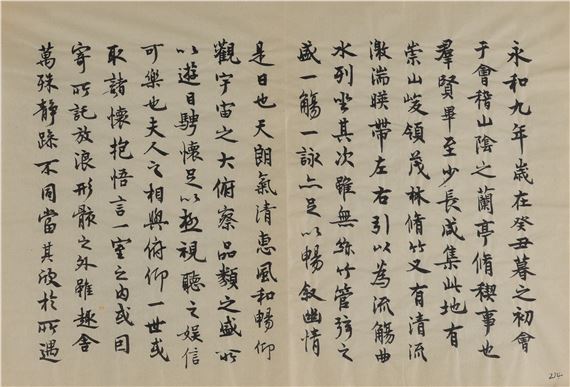 永和九年歲在癸丑暮之初會
于會稽山陰之蘭亭脩稧事也
羣賢畢至少長咸集此地有
崇山峻領茂林脩竹又有清流
激湍暎帶左右引以為流觴曲
水列坐其次雖無絲竹管弦之
盛一觴一詠亦足以暢叙幽情
是日也天朗氣清惠風和暢仰
觀宇宙之大俯察品類之盛所
以遊目騁懷足以極視聽之娛信
可樂也夫人之相與俯仰一世或
取諸懷抱悟言一室之內或因
寄所託放浪形骸之外雖趣舍
萬殊靜躁不同當其欣於所遇